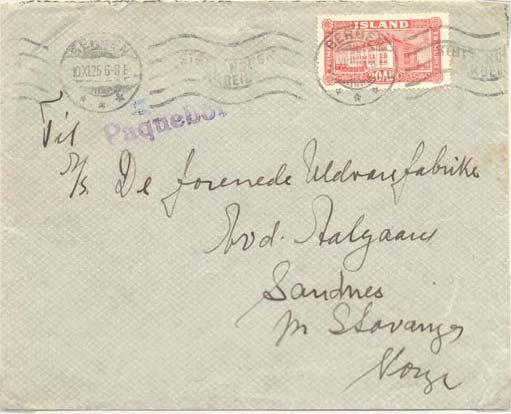 BERGEN
10.XI.25.6-8 E
BERGEN
ISLAND
FRIMERKI
20 AUR
Paquebot
Til
A/S. De forenede Uldvarefabrike
Avd. Aalgaard
Sandnes
pr Stavanger
Norge